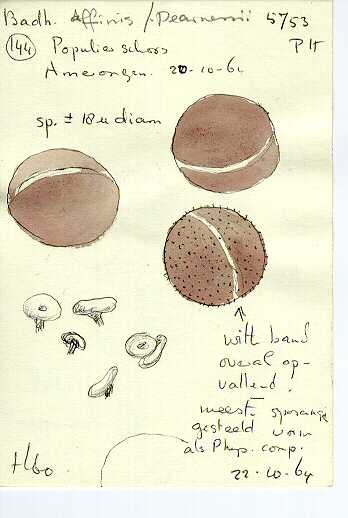 Badh. Affinis / Dearnessii 5753
144 Populier schors P lt
Amerongen. 20-10-64
sp. ± 18 u diam
witt band
overal op-
vallend!
meest sporangia
gesteeld vorm
als Phys. comp.
22-10-64